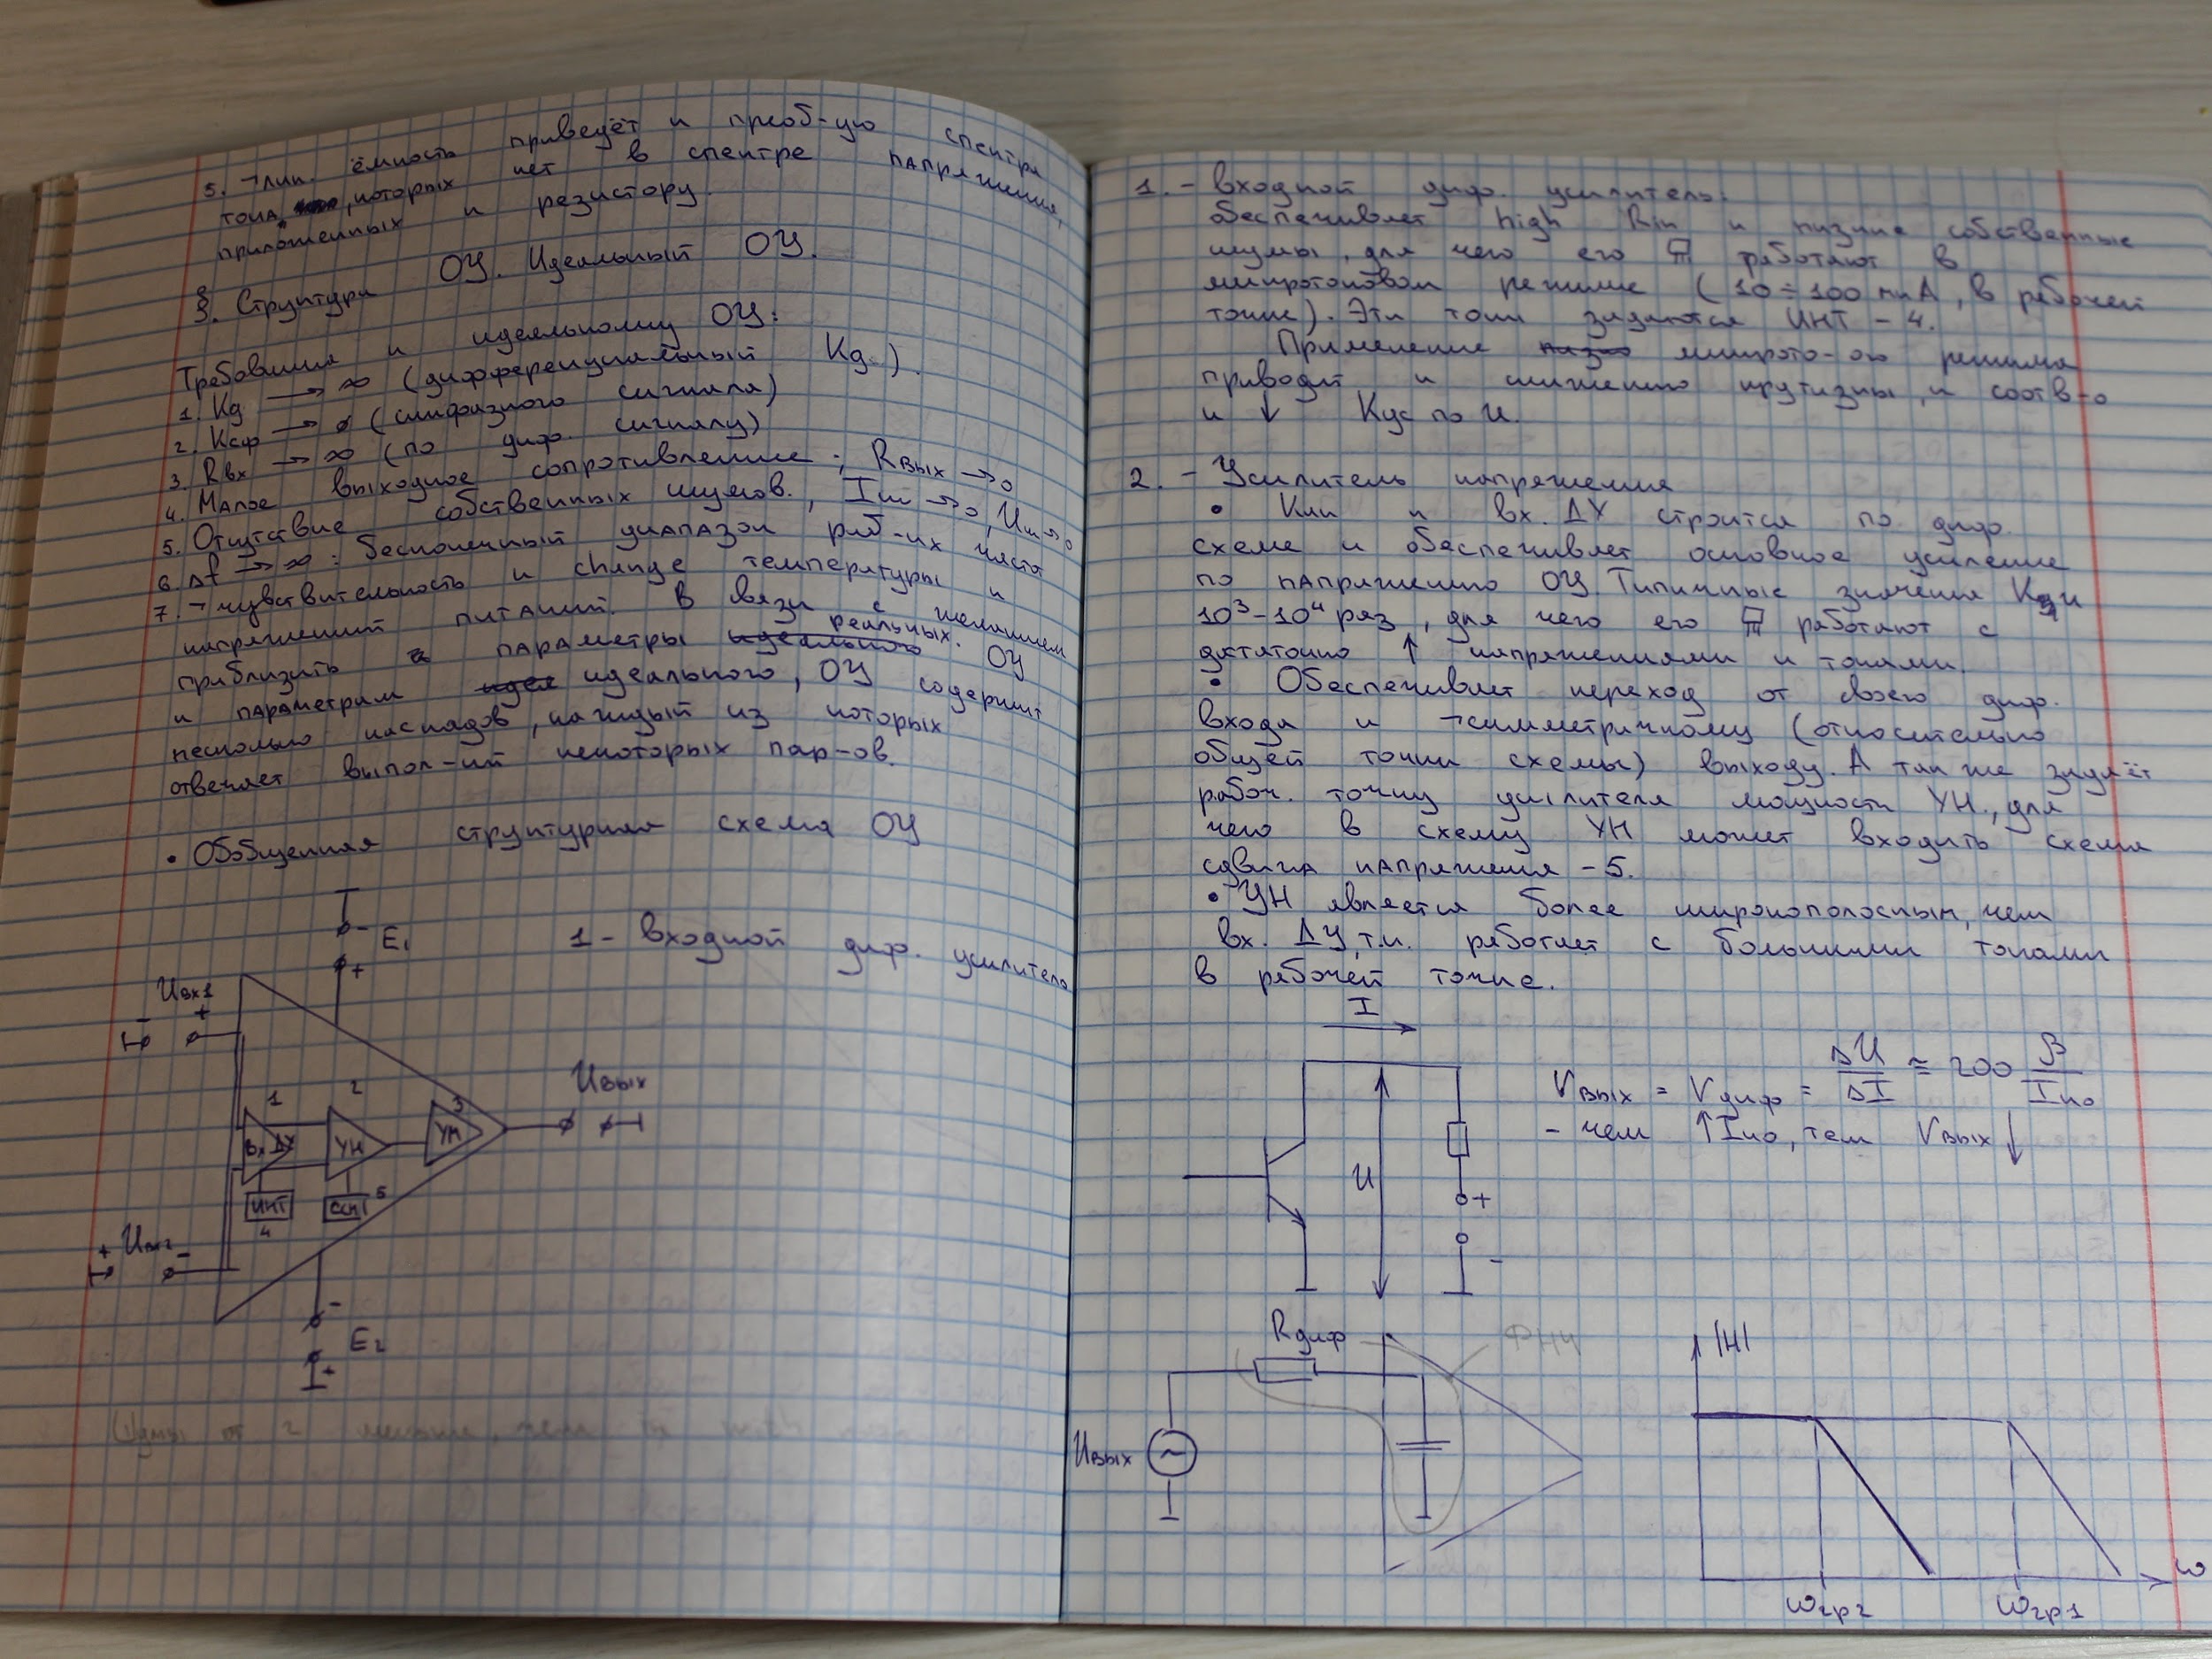 5. ¬лин. ёмкость приведёт к преоб-ую спектра
тока, которых нет в спектре напряжения,
приложенных к резистору.
§. Структура ОУ. Идеальный ОУ.
Требования к идеальному ОУ:
1. Кд → ∞ (дифференциальный Кд.).
2. Ксф → 0 (синфазного сигнала)
3. Rвх → ∞ (по диф. сигналу)
4. Малое выходное сопротивление; Rвых → 0
5. Отсутствие собственных шумов., Iш → 0, Uш → 0
6. Δf → ∞ : бесконечный диапазон раб-их частот
7. ¬ чувствительность к change температуры и
напряжений питаний. В связи с желанием
приблизить параметры реальных ОУ
к параметрам идеального, ОУ содержит
несколько каскадов, каждый из которых
отвечает выпол-ий некоторых пар-ов.
• Обобщенная структурная схема ОУ
- E1
+
1 - входной диф. усилитель
Uвх1
- +
Uвых
1 2 3
Вх ДУ УН УМ
ИНТ ССН 5
4
+ Uвх2 -
-
E2
+
Шумы от 2 меньше, чем
1. - входной диф. усилитель:
обеспечивает high Rin и низкие собственные
шумы, для чего его работают в
микротоковом режиме (10÷100 мкА, в рабочей
точке). Эти токи задаются ИНТ - 4.
Применение микрото-ого режима
приводит к снижению крутизны, и соотв-о
и ↓ Кус по U.
2. - Усилитель напряжения
• Как и вх. ДУ строится по диф.
схеме и обеспечивает основное усиление
по напряжению ОУ. Типичные значения
10³-10⁴ раз, для чего его работают с
достаточно ↑ напряжениями и токами.
• Обеспечивает переход от своего диф.
входа к ¬симметричному (относительно
общей точки схемы) выходу. А так же задаёт
рабоч. точку усилителя мощности УН., для
чего в схему УН может входить схема
сдвига напряжения - 5.
• УН является более широкополосным, чем
вх. ДУ, т.к. работает с большими токами
в рабочей точке.
I
rвых = rдиф = ΔU/ΔI ≈ 200 β/Iко
- чем ↑Iко, тем rвых ↓
U
+
-
Rдиф ФНЧ
|H|
Uвых ~
ω
ωгр2 ωгр1